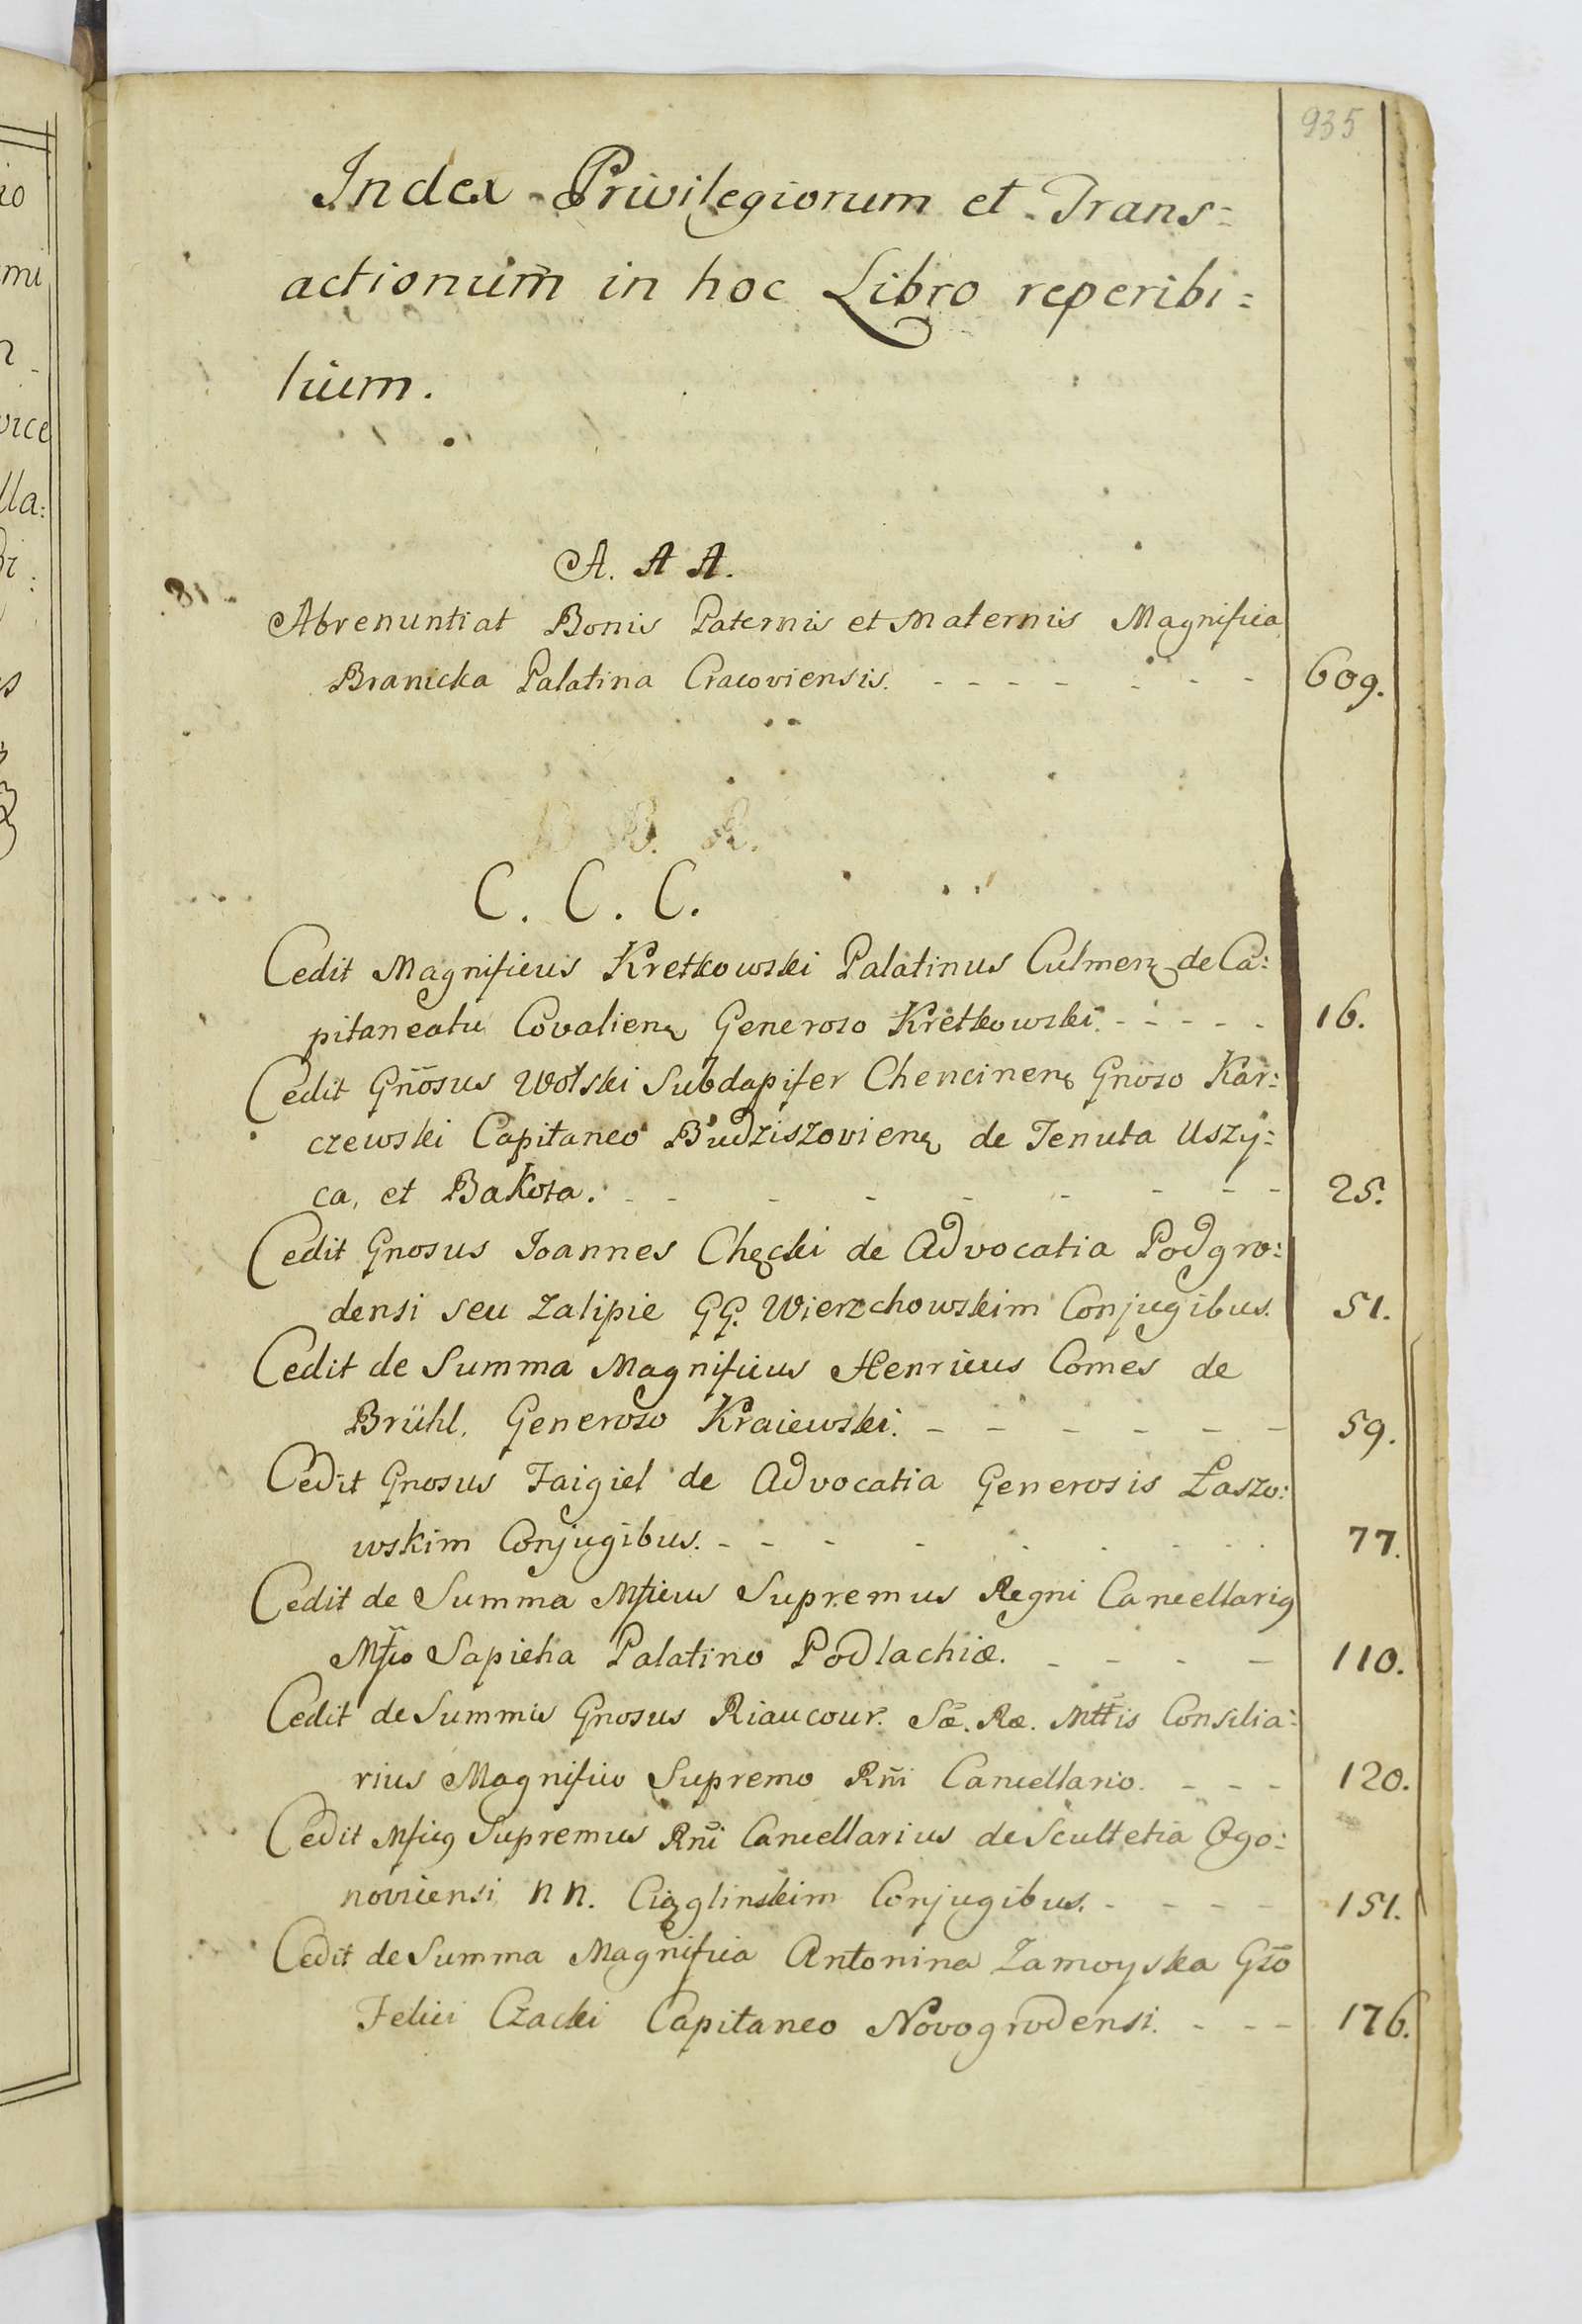 935
Index Privilegiorum et Trans=
actionum in hoc Libro reperibi=
lium.
A. A A.
Abrenuntiat Bonis Paternis et Maternis Magnifica
Branicka Palatina Cracoviensis. - - - - - - - 609.
B. B.
C. C. C.
Cedit Magnificus Kretkowski Palatinus Culmen̨ de Ca=
pitaneatu Covalien̨ Generoso Kretkowski. - - - - - 16.
Cedit Gñosus Wolski Subdapifer Chencinen̨ Gnoso Kar=
czewski Capitaneo Budziszovien̨ de Tenuta Uszy=
ca, et Bakota. - - - - - - - - - 25.
Cedit Gnosus Joannes Chęcki de Advocatia Podgro=
densi seu Zalipie GG. Wierzchowskim Conjugibus. 51.
Cedit de Summa Magnificus Henricus Comes de
Brühl, Generoso Kraiewski. - - - - - - 59.
Cedit Gnosus Faigiel de Advocatia Generosis Łaszo=
wskim Conjugibus. - - - - - - - - - 77.
Cedit de Summa Mficus Supremus Regni Cancellarius
Mfico Sapieha Palatino Podlachiæ. - - - - 110.
Cedit de Summis Gnosus Riaucour. Sæ. Ræ. Mttis Consilia=
rius Magnifico Supremo Rñi Cancellario. - - - 120.
Cedit Mficus Supremus Rñi Cancellarius de Scultetia Ogo=
noviciensi nn. Ciąglinskim Conjugibus. - - - - 151.
Cedit de Summa Magnifica Antonina Zamoyska Gso
Felici Czacki Capitaneo Novogrodensi. - - - 176.
io
mi
n
vice
lla: